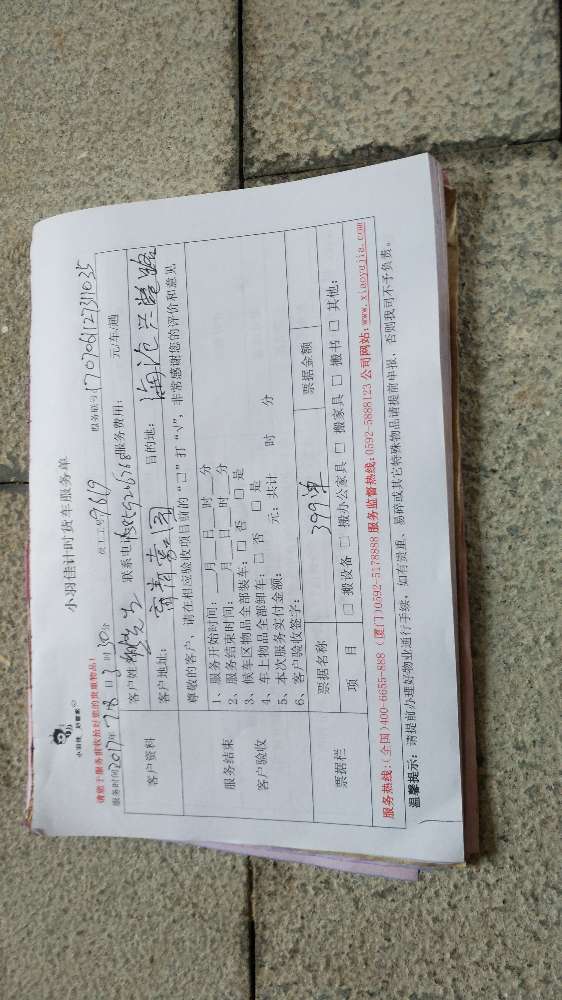 小羽佳 好管家
小羽佳计时货车服务单
请您于服务前收拾好您的贵重物品!
员工工号9619
服务编号:170706112731035
服务时间2017年7月8日 时30分
客户资料
客户姓 先生 联系电 服务费用: 元/车/趟
客户地址: 目的地: 海沧兴 路
服务结束
客户验收
尊敬的客户,请在相应验收项目前的“□”打“√”,非常感谢您的评价和意见
1、服务开始时间:__月__日__时__分
2、服务结束时间:__月__日__时__分
3、候车区物品全部装车:□ 否 □ 是
4、车上物品全部卸车:□ 否 □ 是
5、本次服务实付金额: 元;共计 时 分
6、客户验收签字:
票据栏
票据名称 399单 票据金额
项 目 □ 搬设备 □ 搬办公家具 □ 搬家具 □ 搬书 □ 其他:
服务热线:(全国)400-6655-888 (厦门)0592-5178888 服务监督热线:0592-5888123 公司网站:www.xiaoyujia.com
温馨提示:请提前办理好物业通行手续,如有贵重、易碎或其它特殊物品请提前申报,否则我司不予负责。